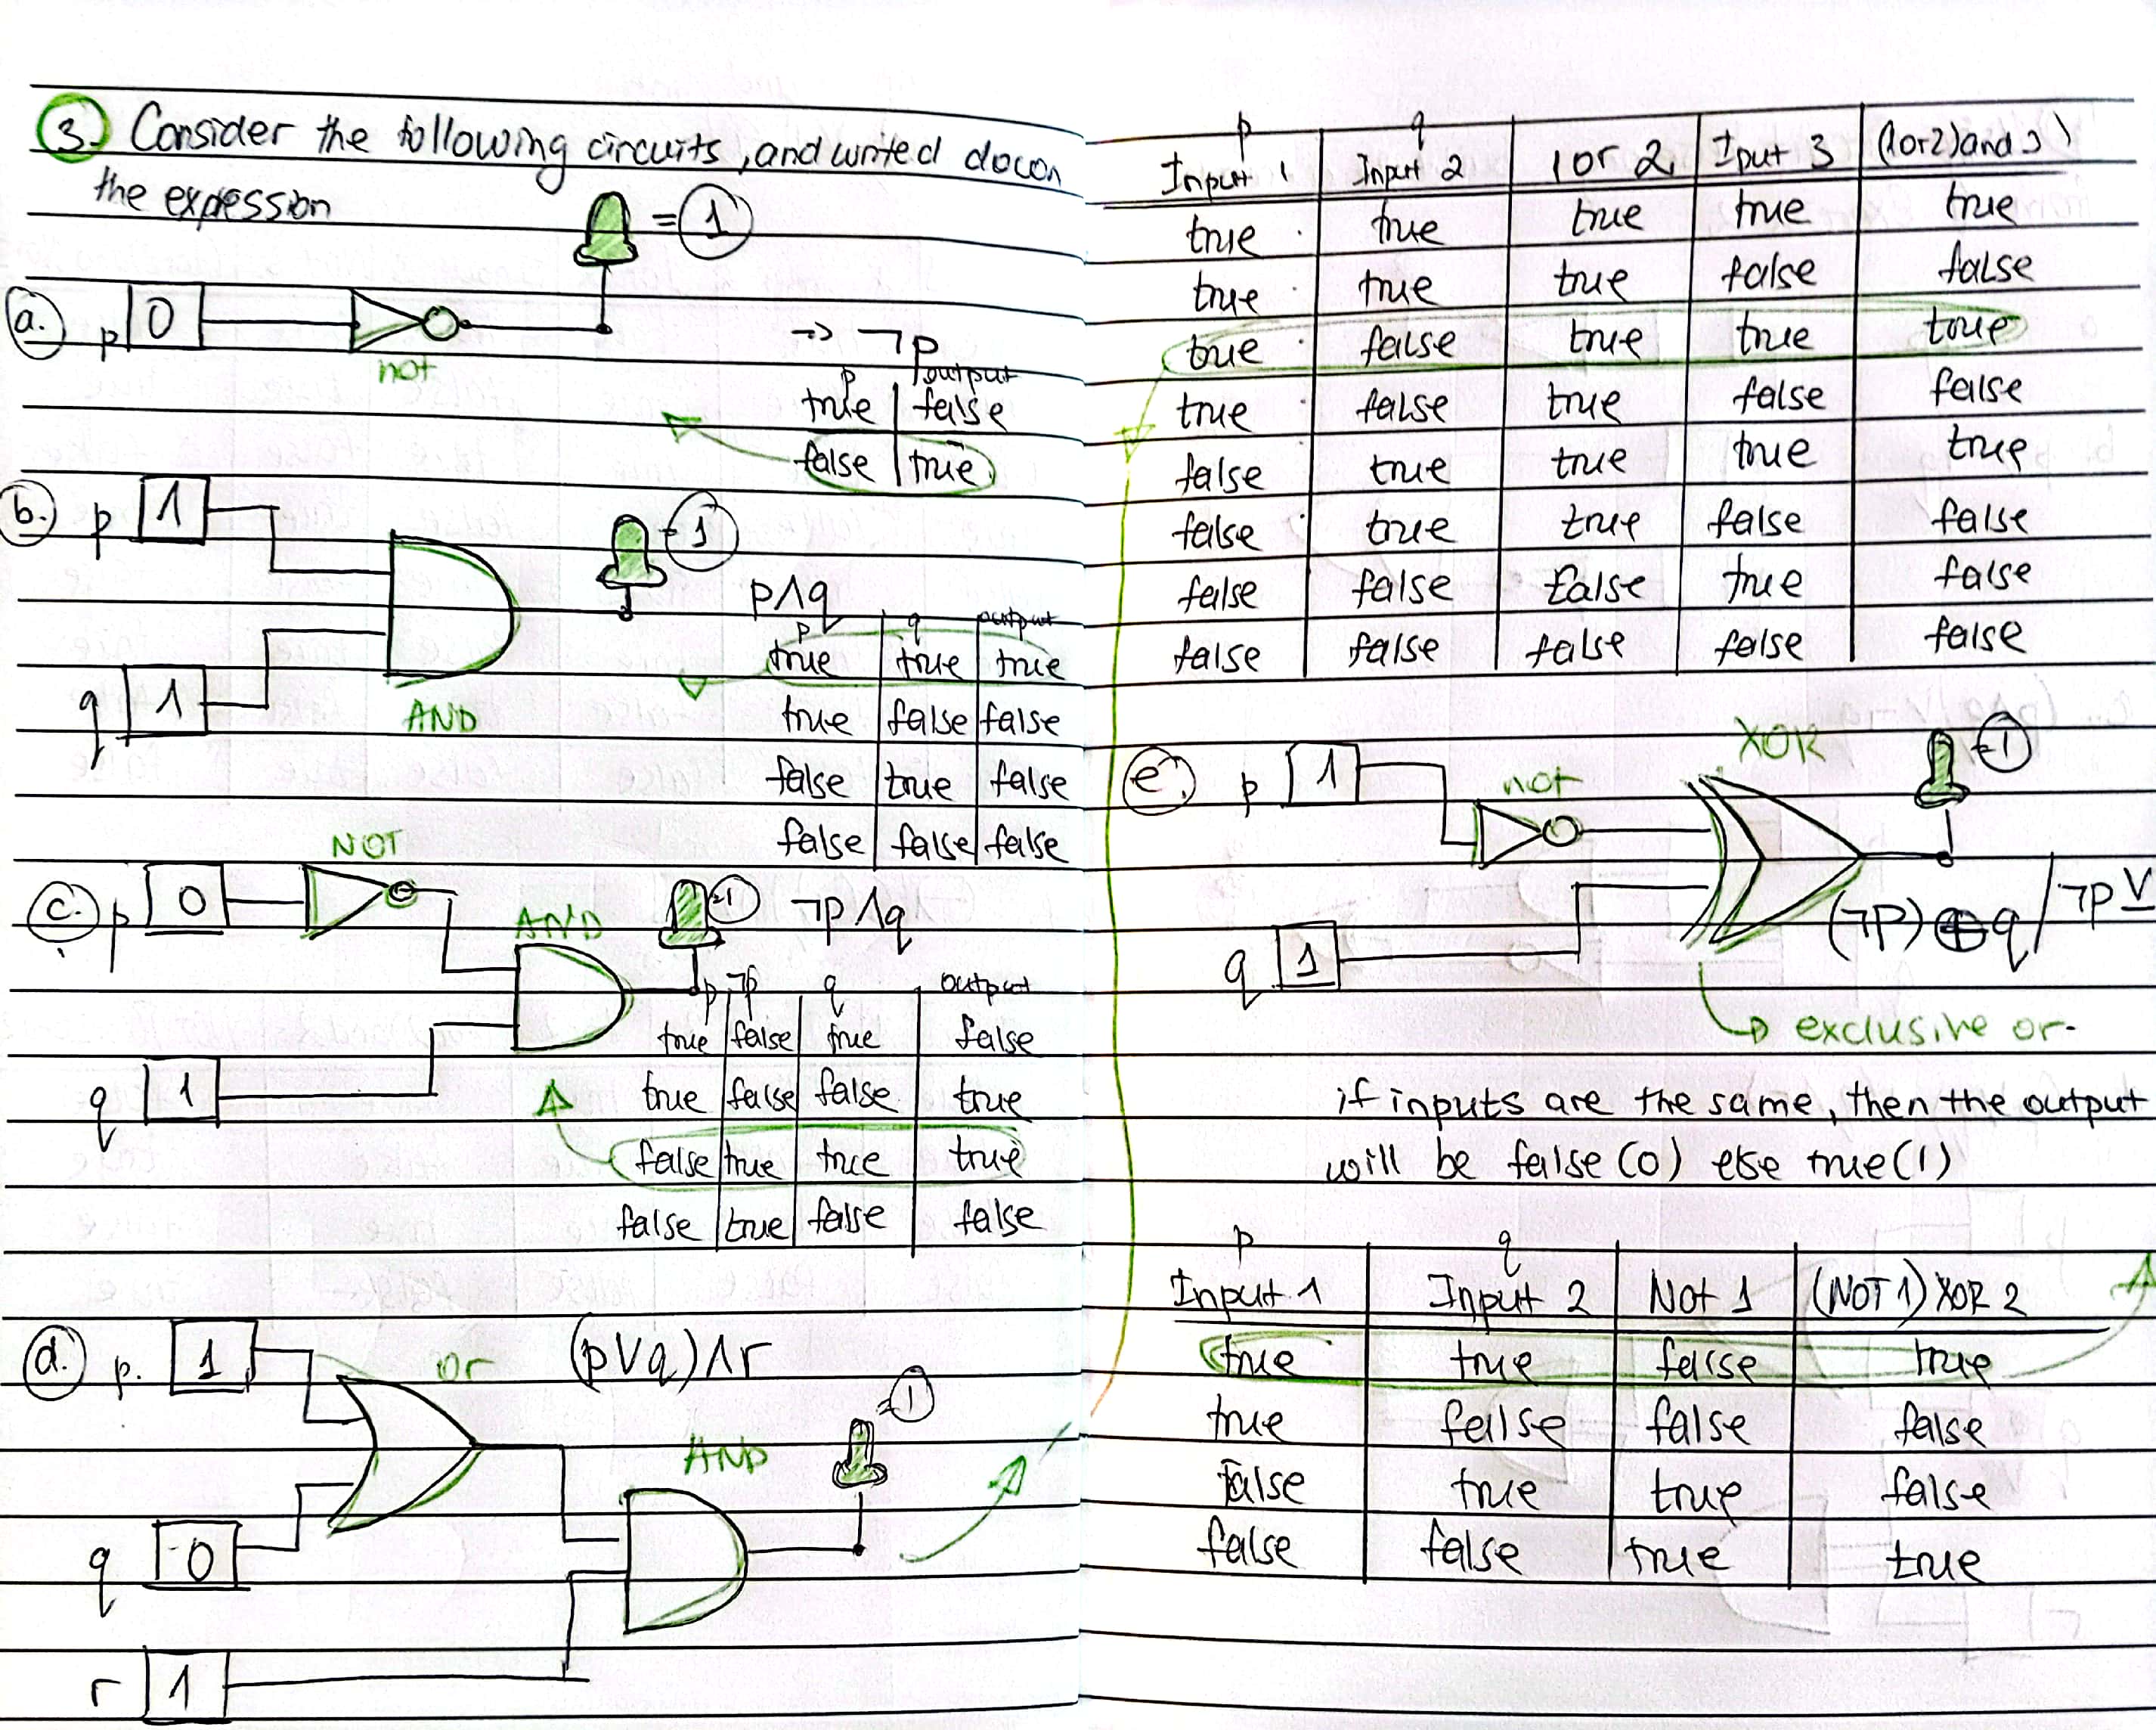 3. Consider the following circuits, and writed down
the expession
= 1
a. p 0
not
=> ¬p
p output
true false
false true
b. p 1
= 1
p∧q
p q output
true true true
q 1
AND
true false false
false true false
false false false
NOT
c. p 0
AND
=1
¬p∧q
p ¬p q output
true false true false
q 1
true false false true
false true true true
false true false false
d. p. 1
or
(p∨q)∧r
=1
AND
q 0
r 1
p q
Input 1 Input 2 1 or 2 Iput 3 (1or2)and 3
true true true true true
true true true false false
true false true true true
true false true false false
false true true true true
false true true false false
false false false true false
false false false false false
XOR
=1
e. p 1
not
(¬p)⊕q / ¬p⊻
q 1
exclusive or
if inputs are the same, then the output
will be false (0) else true (1)
p q
Input 1 Input 2 Not 1 (NOT 1) XOR 2
true true false true
true false false false
false true true false
false false true true